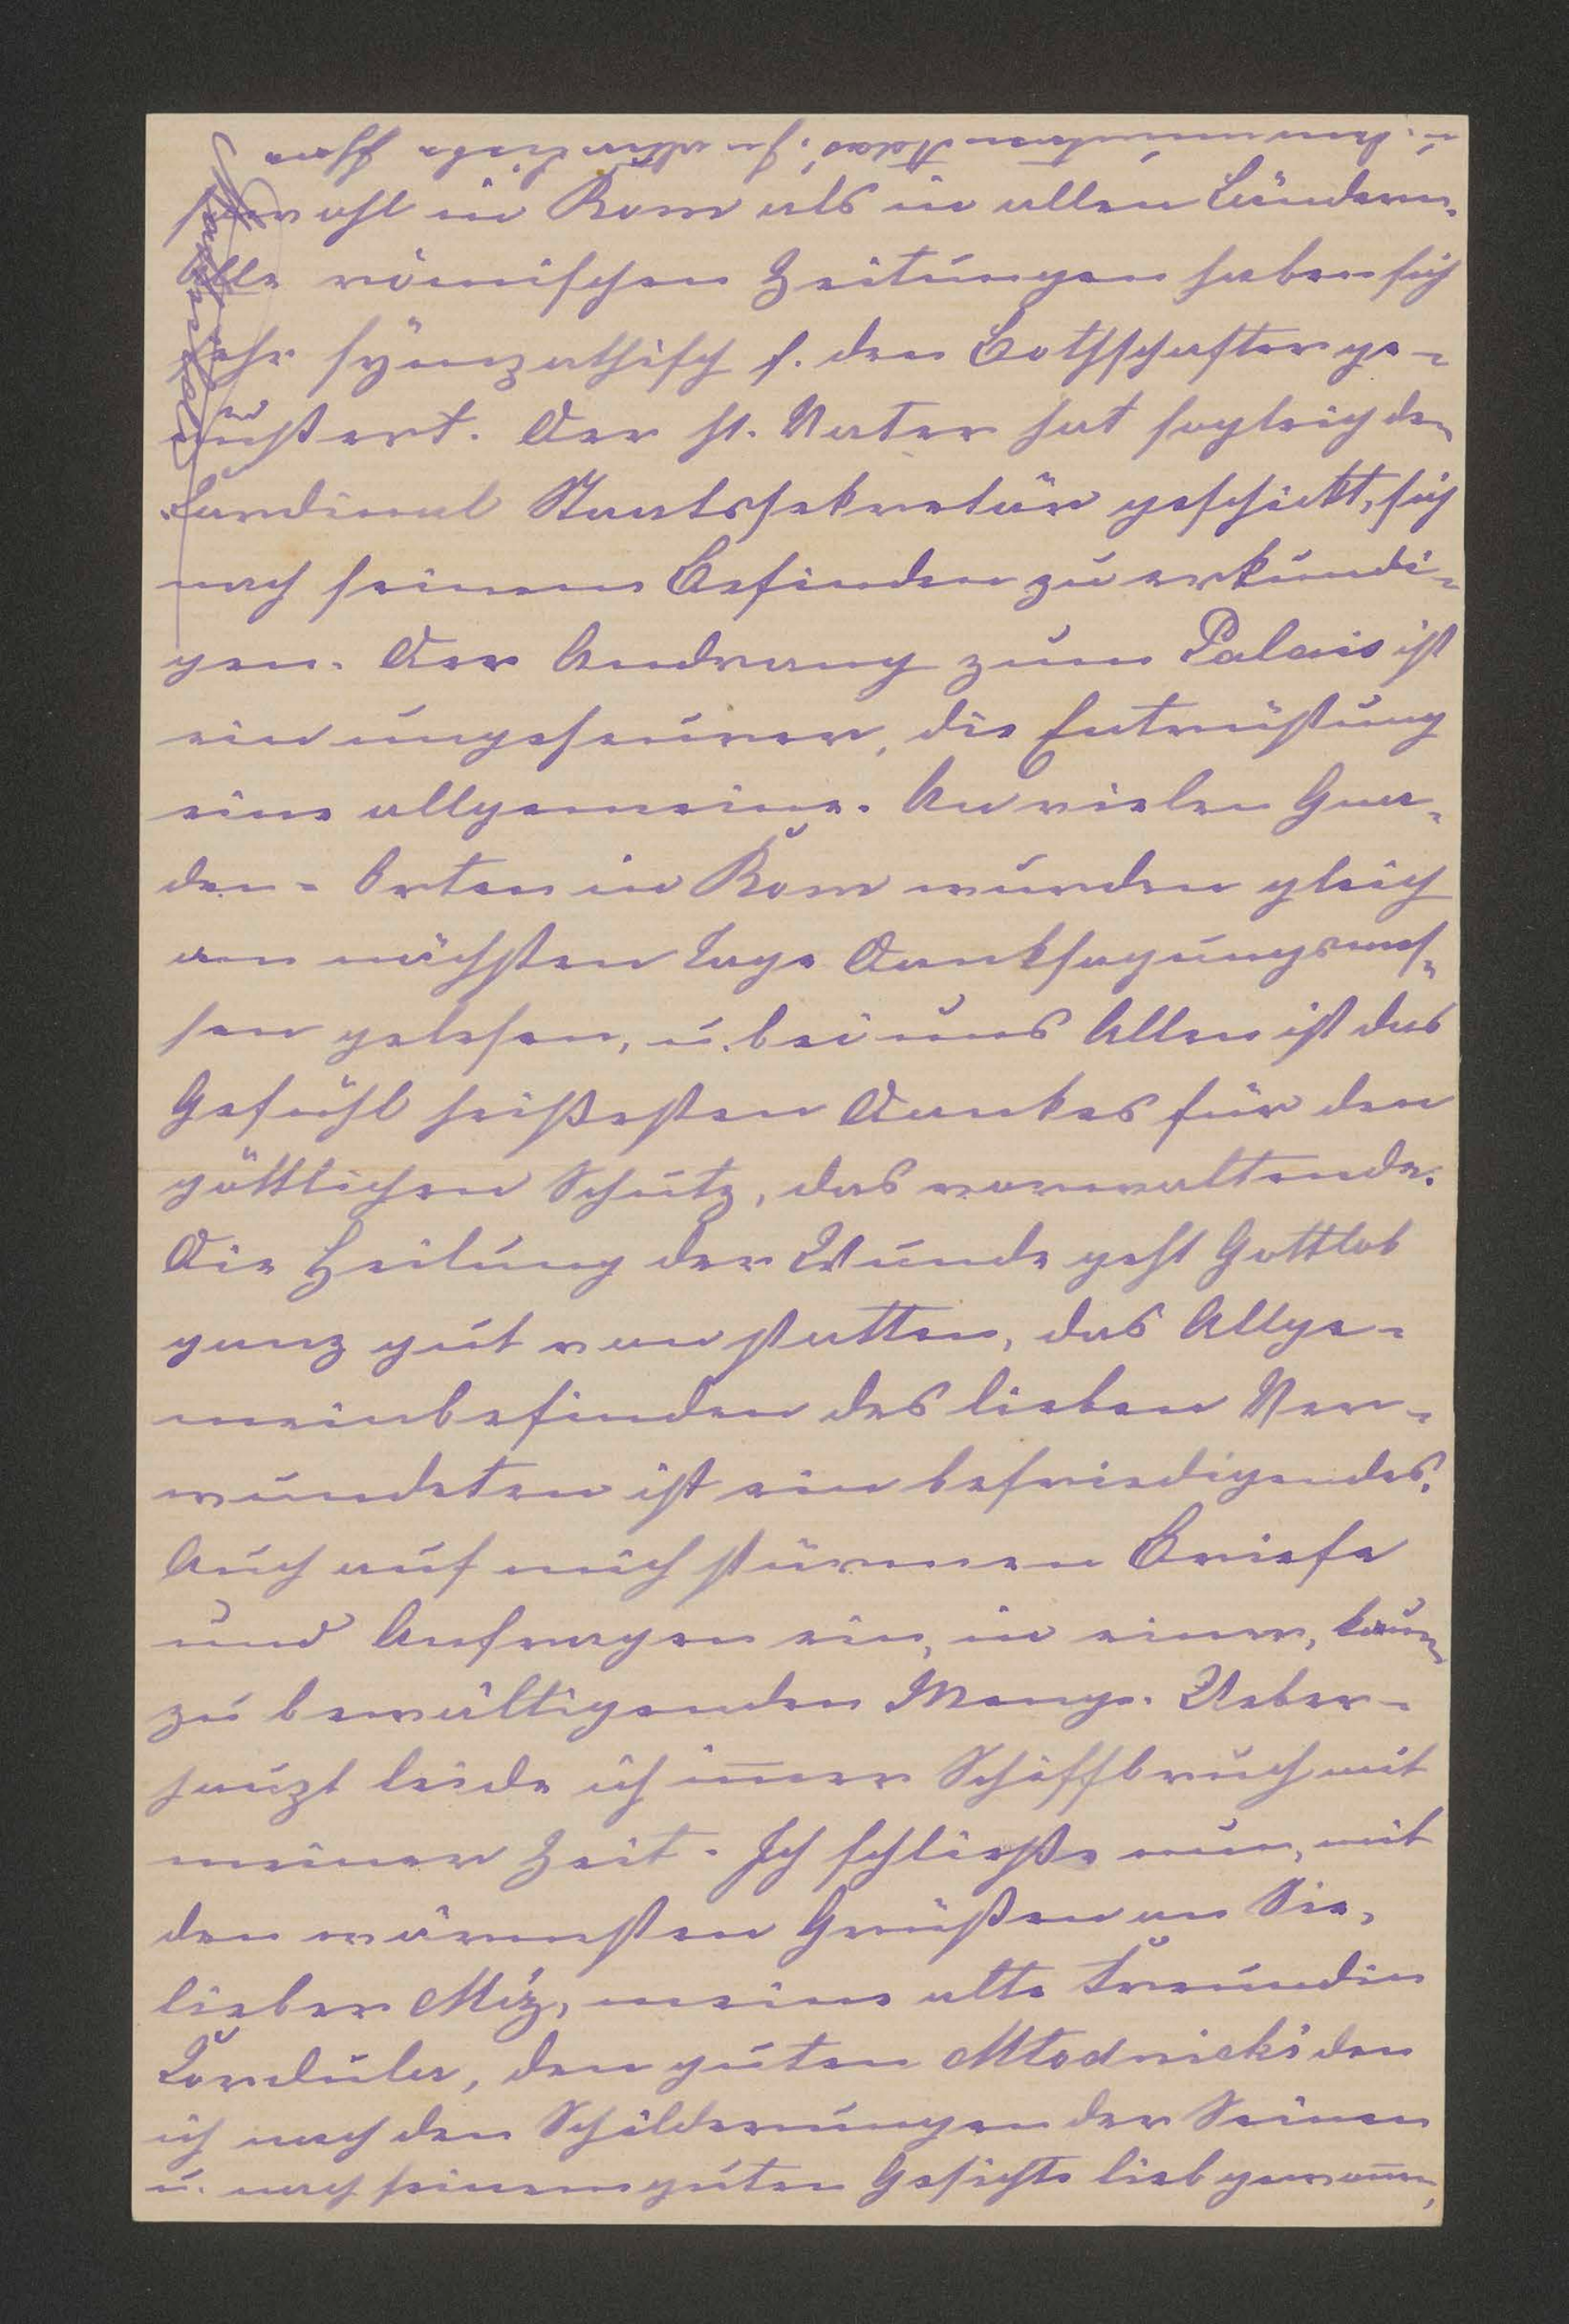 sowohl in Rom als in allen Ländern.
Alle römischen Zeitungen haben sich
sehr sympathisch f. den Bothschafter ge-
äußert. Der hl. Vater hat sogleich den
Cardinal Staatssekretär geschickt, sich
nach seinem Befinden zu erkundi-
gen. Der Andrang zum Palais ist
ein ungeheurer, die Entrüstung
eine allgemeine. An vielen Gna-
den-Orten in Rom wurden gleich
am nächsten Tage Danksagungsmes-
sen gelesen, u. bei uns Allen ist das
Gefühl heißesten Dankes für den
göttlichen Schutz, das vorwaltende.
Die Heilung der Wunde geht Gottlob
ganz gut von statten, das Allge-
meinbefinden des lieben Ver-
wundeten ist ein befriedigendes.
Auch auf mich stürmen Briefe
und Anfragen ein, in einer, kaum
zu bewältigenden Menge. Ueber-
haupt leide ich im̅er Schiffbruch mit
meiner Zeit. Ich schließe nun, mit
den wärmsten Grüßen an Sie,
lieber Miz, meine alte Freundin
Cordula, den guten Młodnicki den
ich nach den Schilderungen der Seinen
u. nach seinem guten Gesichte lieb gewan̅,
u. den munteren In alter Liebe Ihre